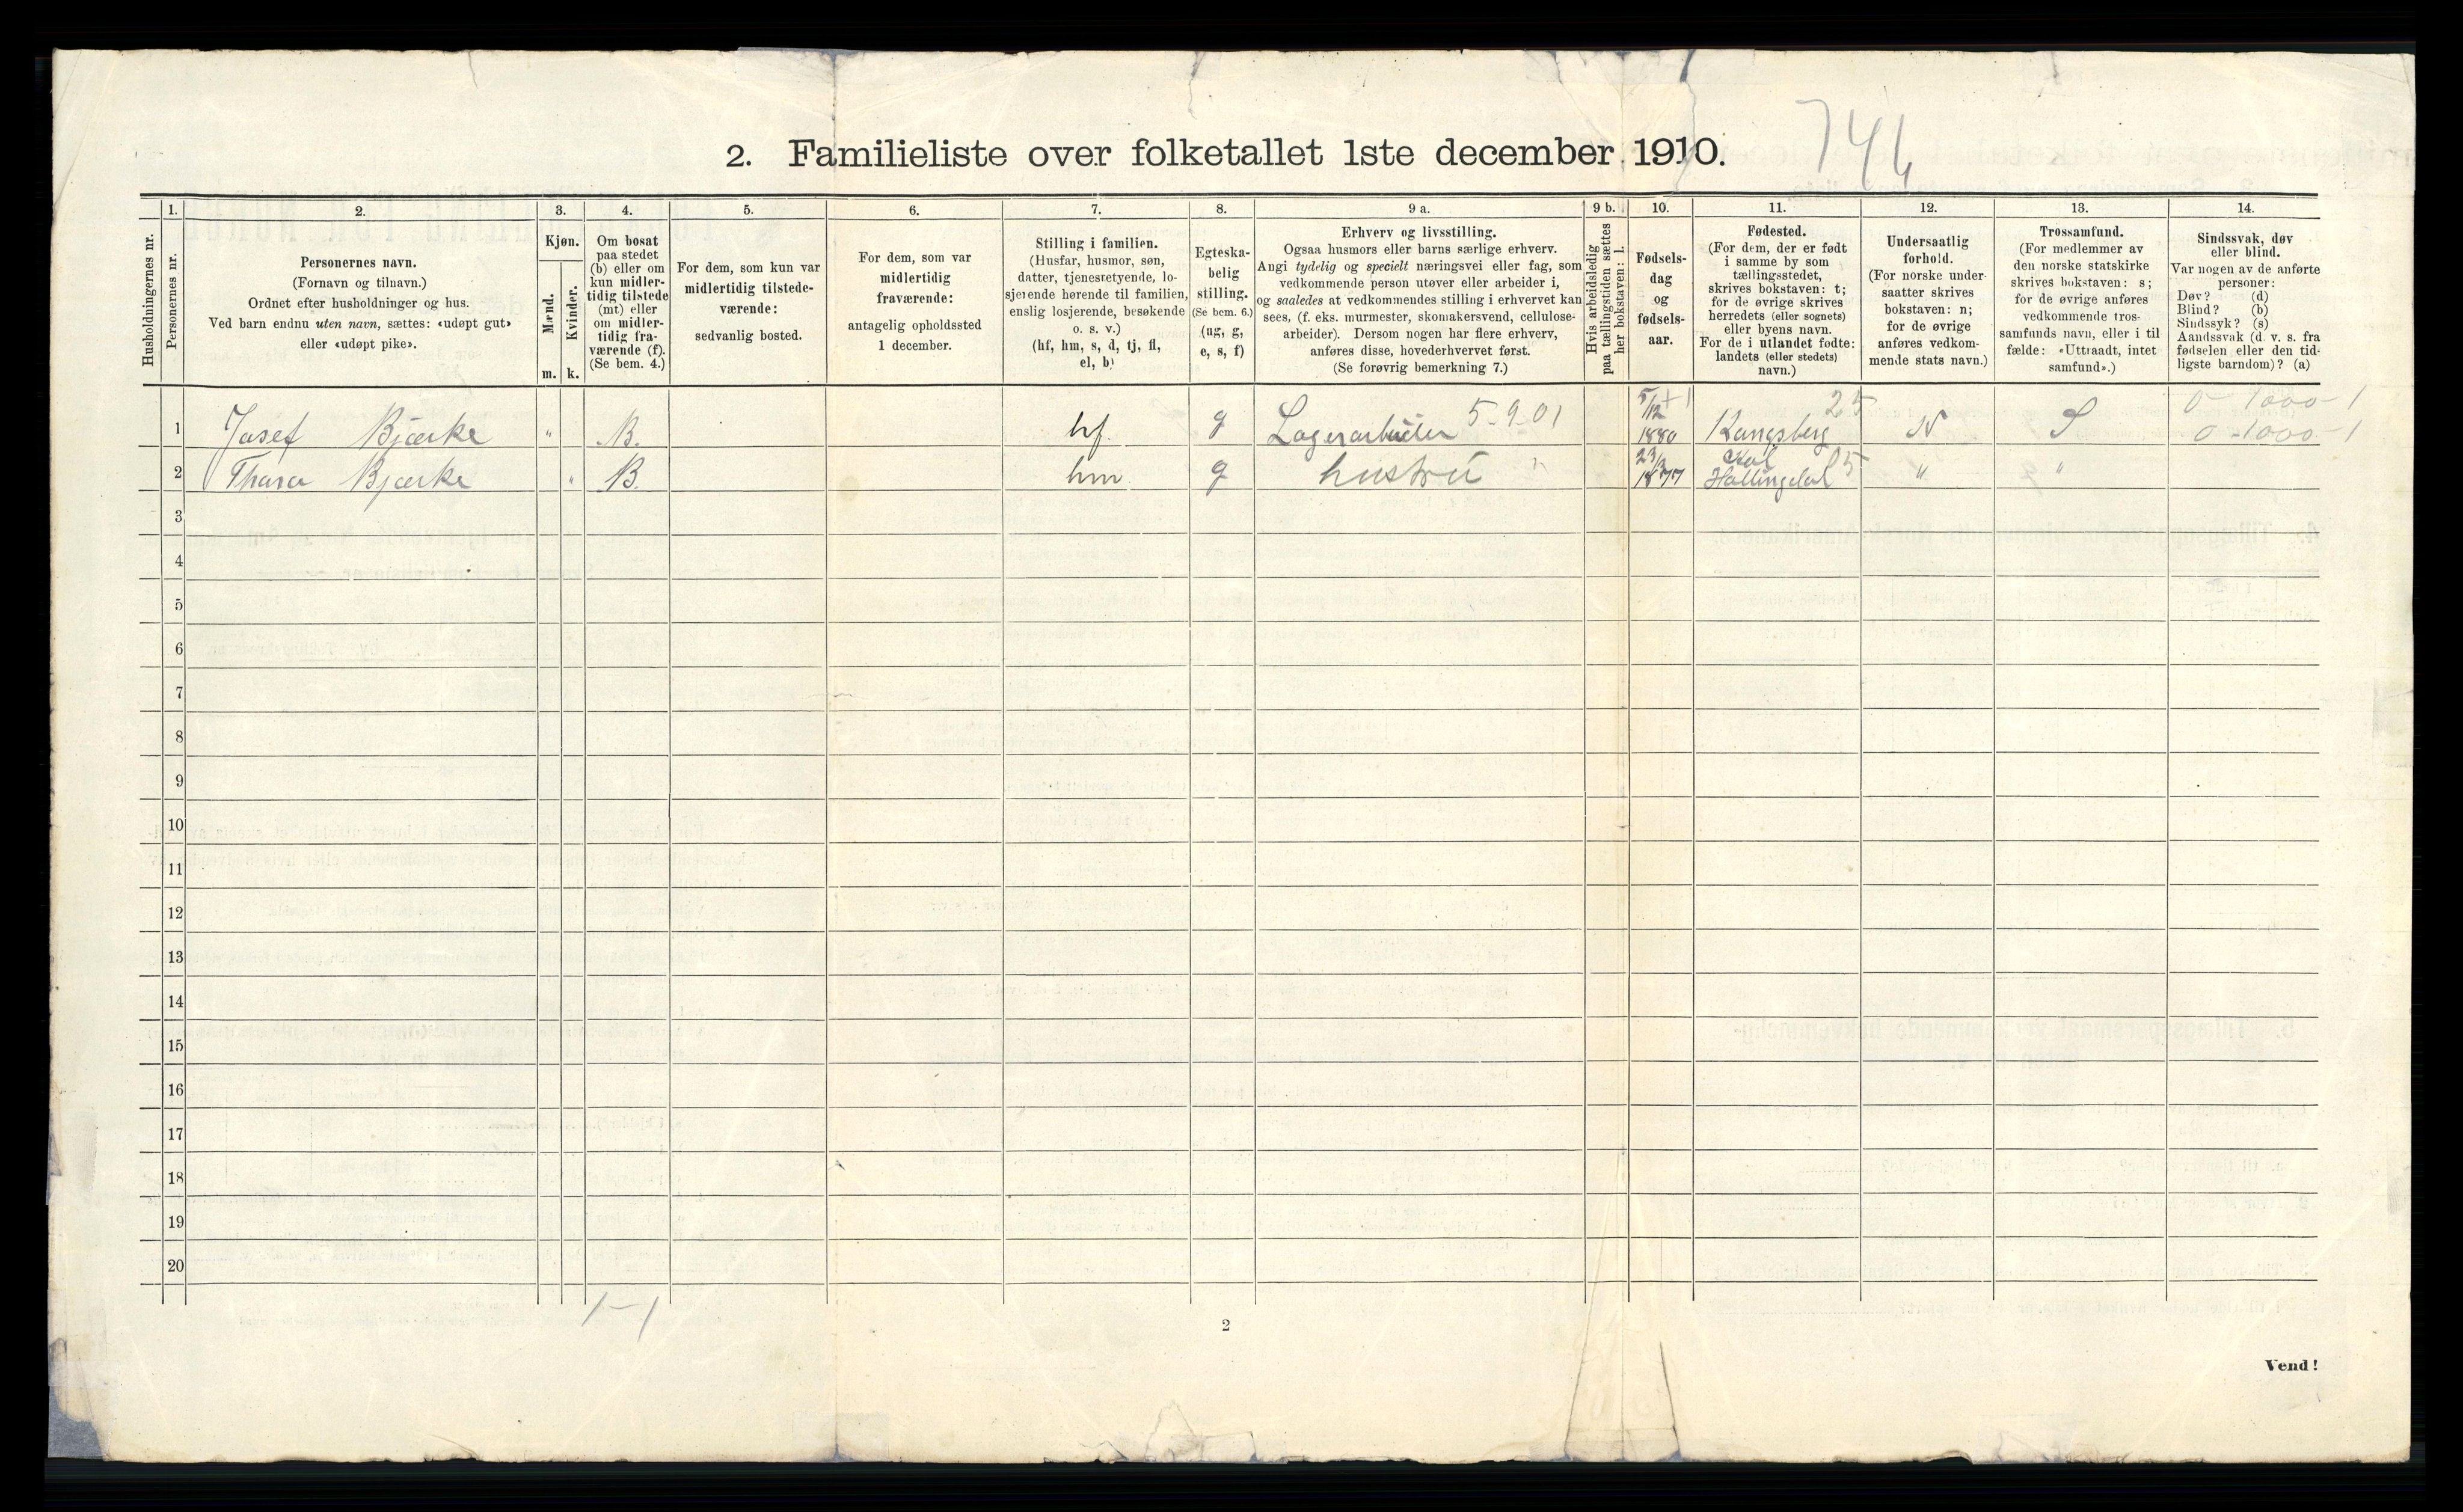 744
2. Familieliste over folketallet 1ste december 1910.
Husholdningernes nr.
1.
Personernes nr.
2.
Personernes navn.
(Fornavn og tilnavn.)
Ordnet efter husholdninger og hus.
Ved barn endnu uten navn, sættes: «udøpt gut»
eller «udøpt pike».
3.
Kjøn.
Mænd.
Kvinder.
m. k.
4.
Om bosat
paa stedet
(b) eller om
kun midler-
tidig tilstede
(mt) eller
om midler-
tidig fra-
værende (f).
(Se bem. 4.)
5.
For dem, som kun var
midlertidig tilstede-
værende:
sedvanlig bosted.
6.
For dem, som var
midlertidig
fraværende:
antagelig opholdssted
1 december.
7.
Stilling i familien.
(Husfar, husmor, søn,
datter, tjenestetyende, lo-
sjerende hørende til familien,
enslig losjerende, besøkende
o. s. v.)
(hf, hm, s, d, tj, fl,
el, b)
8.
Egteska-
belig
stilling.
(Se bem. 6.)
(ug, g,
e, s, f)
9 a.
Erhverv og livsstilling.
Ogsaa husmors eller barns særlige erhverv.
Angi tydelig og specielt næringsvei eller fag, som
vedkommende person utøver eller arbeider i,
og saaledes at vedkommendes stilling i erhvervet kan
sees, (f. eks. murmester, skomakersvend, cellulose-
arbeider). Dersom nogen har flere erhverv,
anføres disse, hovederhvervet først.
(Se forøvrig bemerkning 7.)
9 b.
Hvis arbeidsledig
paa tællingstiden sættes
her bokstaven: l.
10.
Fødsels-
dag
og
fødsels-
aar.
11.
Fødested.
(For dem, der er født
i samme by som
tællingsstedet,
skrives bokstaven: t;
for de øvrige skrives
herredets (eller sognets)
eller byens navn.
For de i utlandet fødte:
landets (eller stedets)
navn.)
12.
Undersaatlig
forhold.
(For norske under-
saatter skrives
bokstaven: n;
for de øvrige
anføres vedkom-
mende stats navn.)
13.
Trossamfund.
(For medlemmer av
den norske statskirke
skrives bokstaven: s;
for de øvrige anføres
vedkommende tros-
samfunds navn, eller i til-
fælde: «Uttraadt, intet
samfund».)
14.
Sindssvak, døv
eller blind.
Var nogen av de anførte
personer:
Døv? (d)
Blind? (b)
Sindssyk? (s)
Aandssvak (d. v. s. fra
fødselen eller den tid-
ligste barndom)? (a)
5/12 25 0-1000-1
1 Josef Bjærke " B. hf. g Lagerarbeider 5-9-01 1880 Kongsberg N S 0-1000-1
23/3 Aal
2 Thora Bjærke " B. hm g hustru " 1877 Hallingdal 05 " "
3
4
5
6
7
8
9
10
11
12
13
14
15
16
17
18
19
20
1-1
2
Vend!